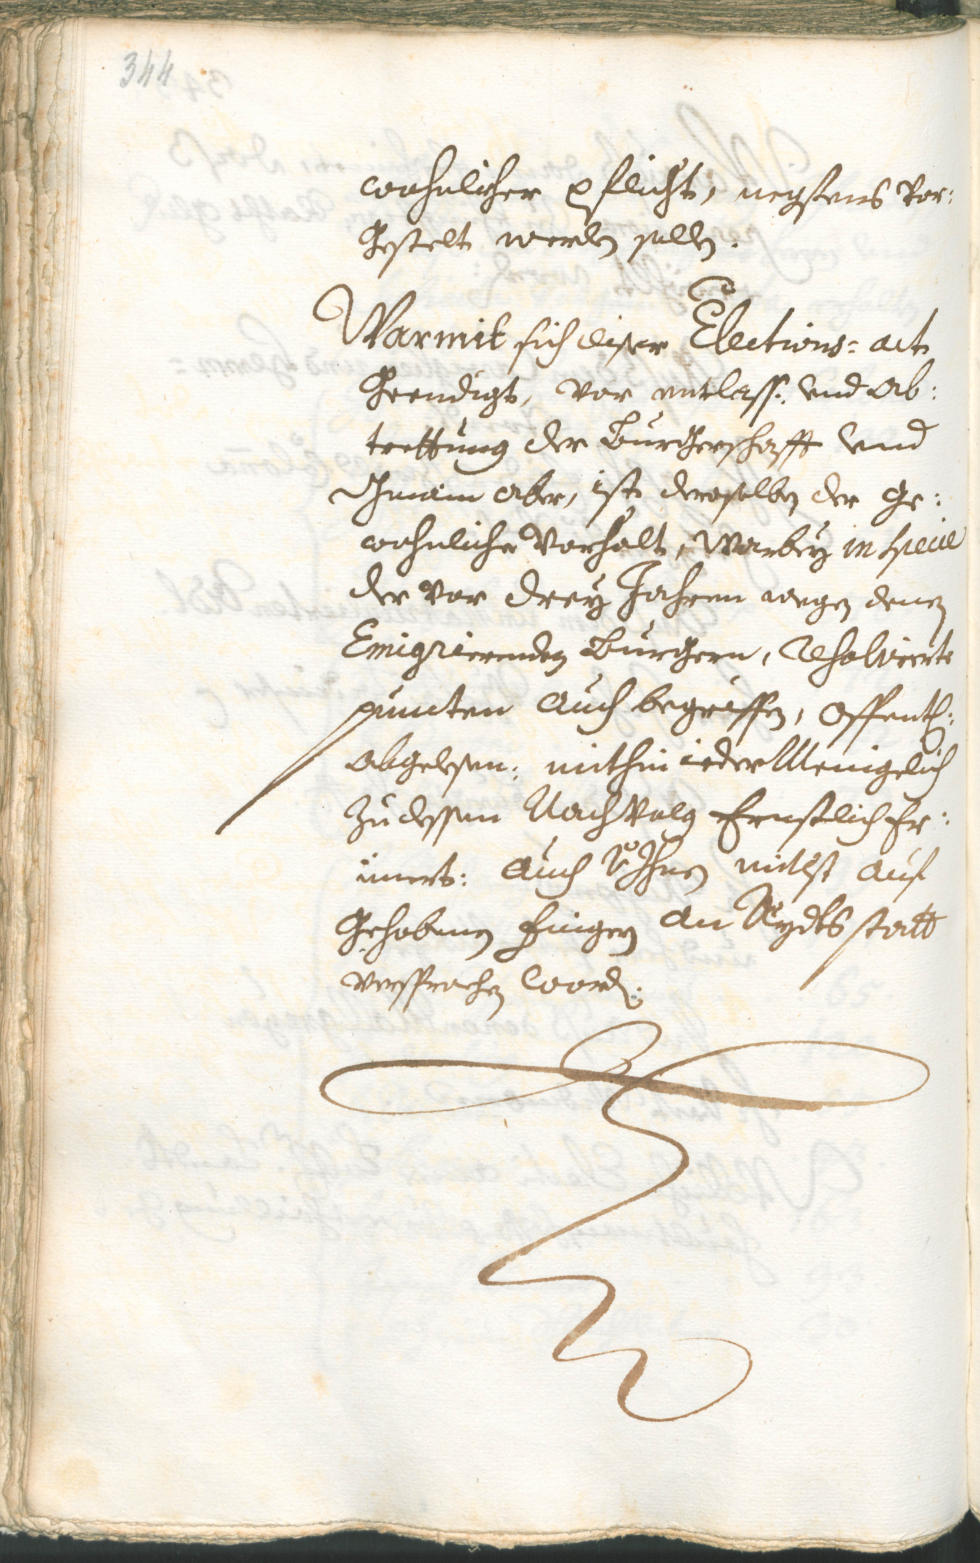 344
wohnlicher pflicht, negstens Vor:
gestelt werden sollen.
Warmit sich diser Elections: act
geendigt, vor entlass: und Ab:
trettung der Burgerschafft und
Gmain aber, ist derselben der ge:
wohnliche Vorhalt, Warbey in specie
der vor drey Jahren wegen denen
Emigrierenden Burgern, resolvierte
puncten auch begriffen, offentl:
abgelesen: mithin ieder Menigelich
zu dessen Nachvolg Ernstlich Er:
innert: auch mitlst auf
gehobnen fingern an Aydts statt
versprochen word: